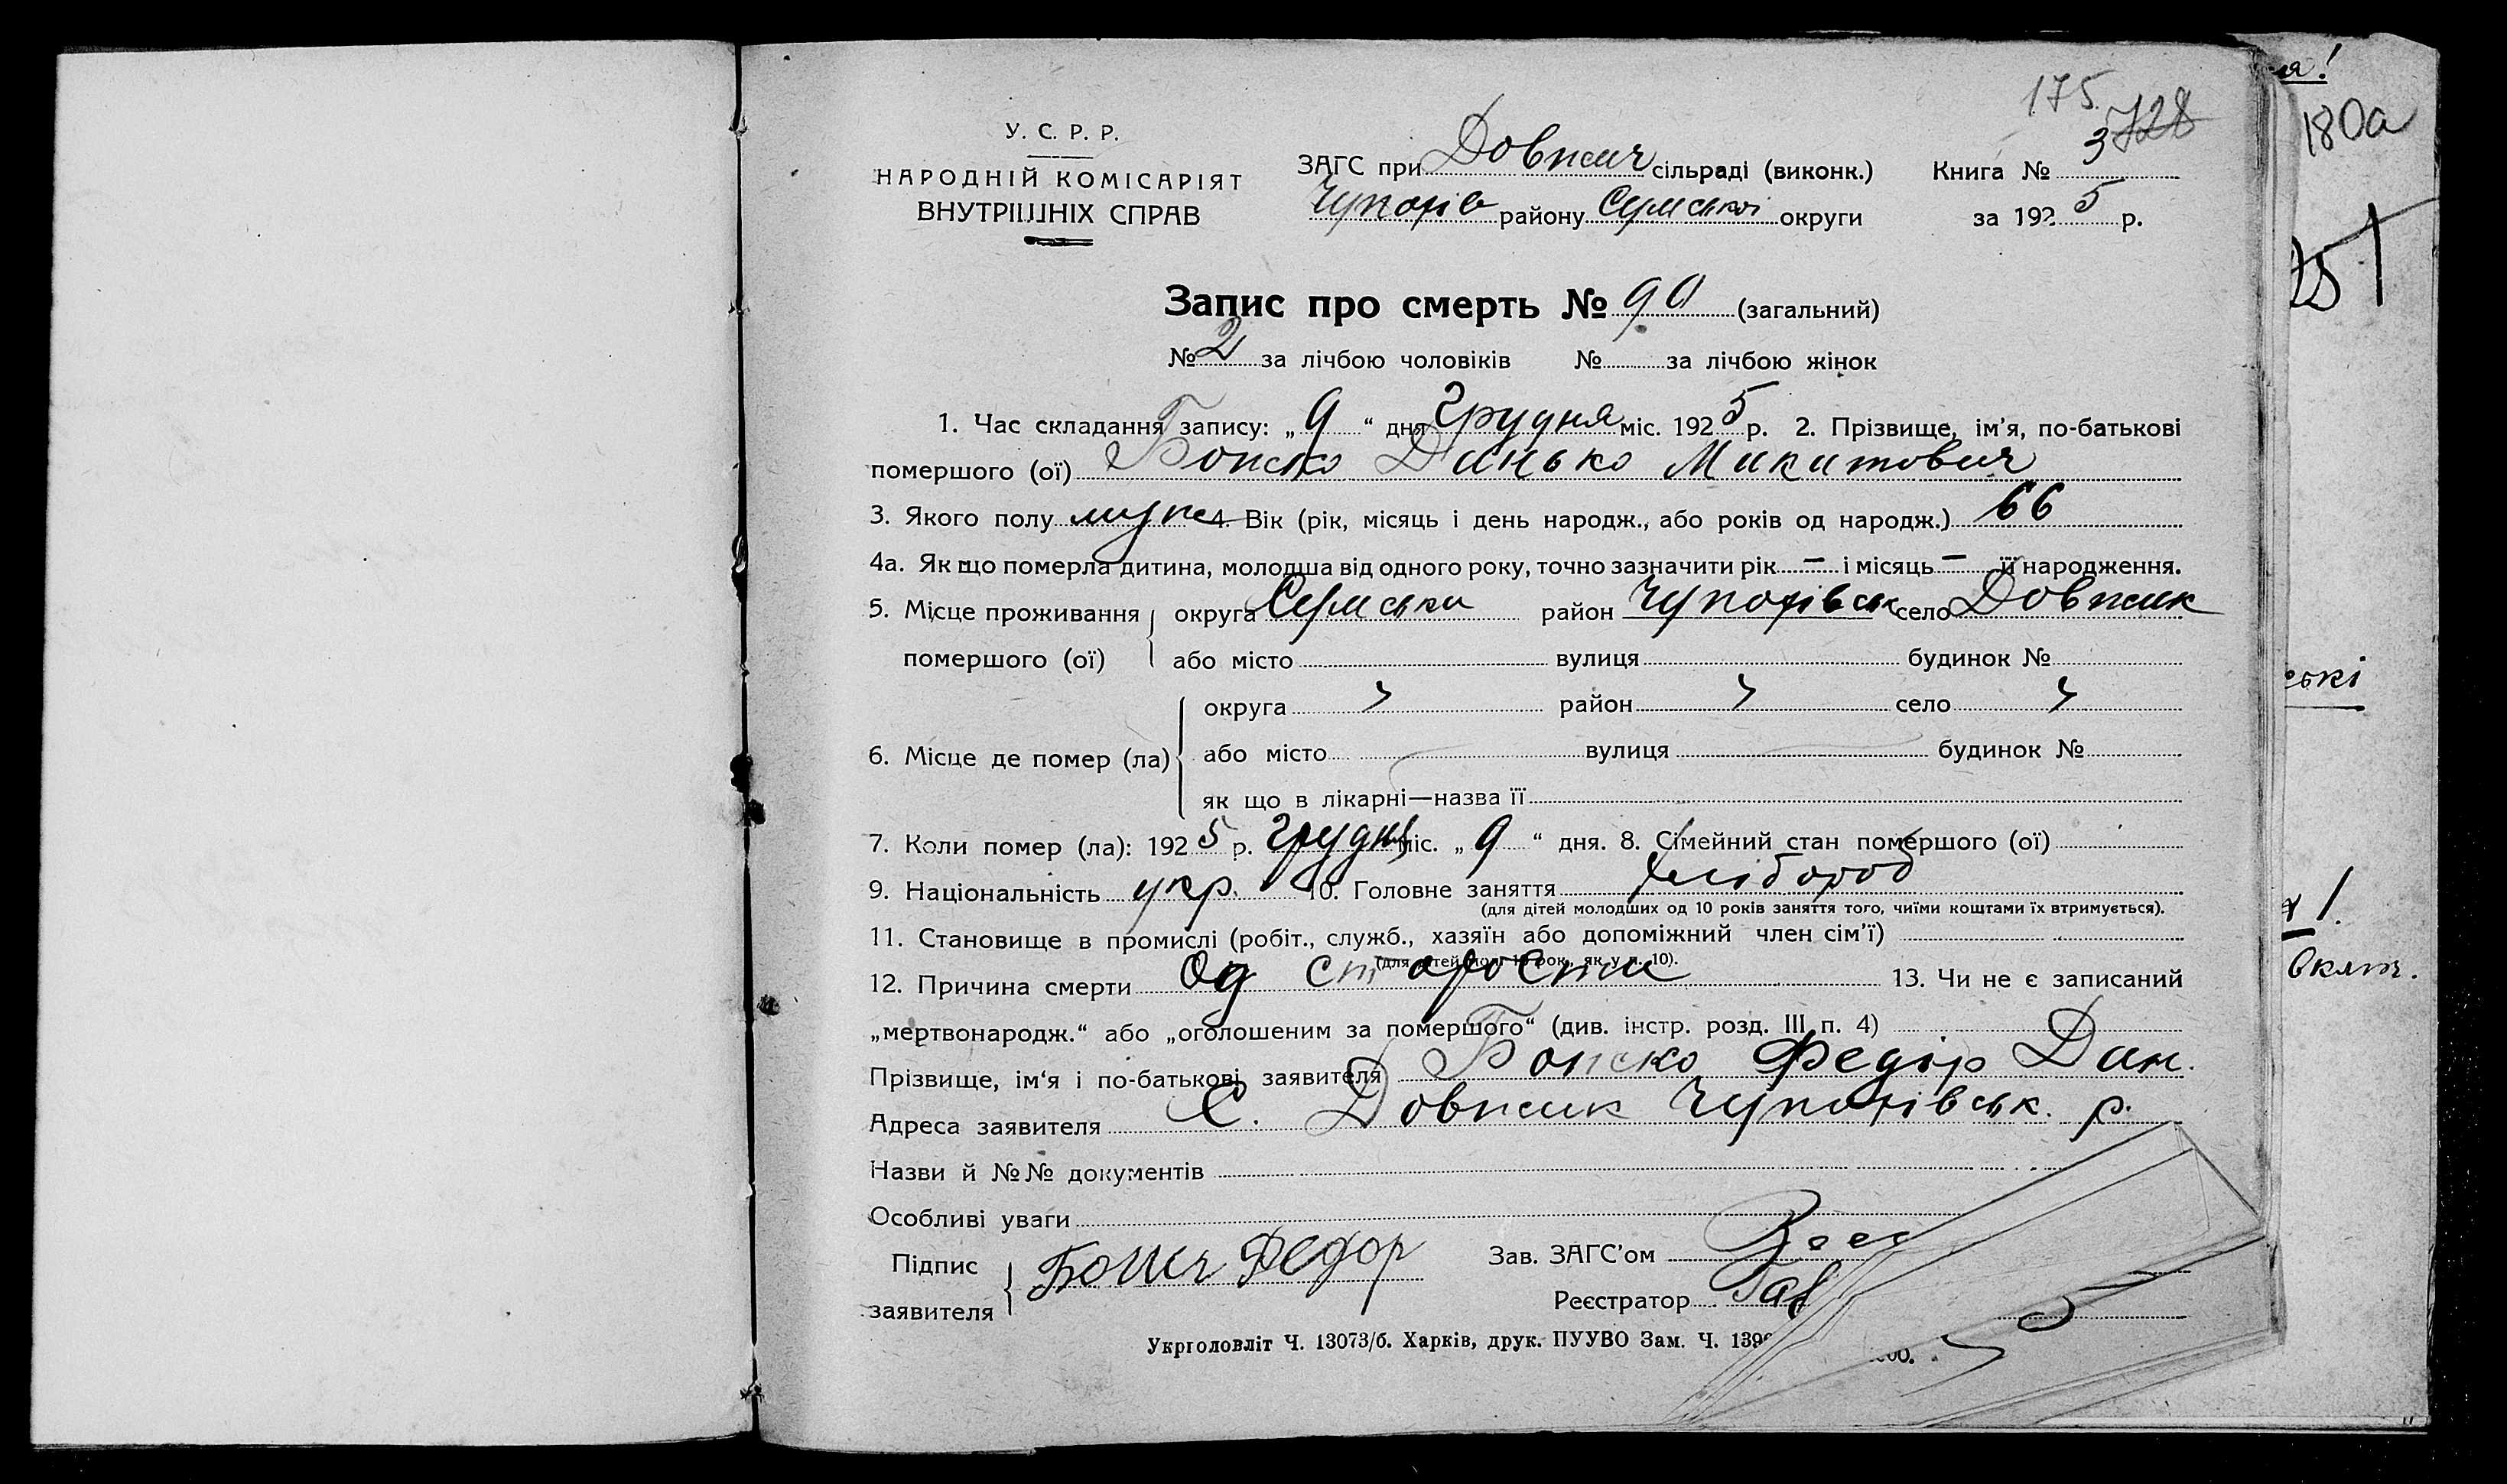 175.
728
У. С. Р. Р.
НАРОДНІЙ КОМІСАРІЯТ
ВНУТРІШНІХ СПРАВ
ЗАГС при Довжич сільраді (виконк.) Книга № 3
Чупохів району Сумської округи за 1925 р.
Запис про смерть № 90 (загальний)
№ 2 за лічбою чоловіків № за лічбою жінок
1. Час складання запису: „9“ дня Грудня міс. 1925 р. 2. Прізвище, ім'я, по-батькові
помершого (ої) Данько Микитович
3. Якого полу муж 4. Вік (рік, місяць і день народж., або років од народж.) 66
4а. Як що померла дитина, молодша від одного року, точно зазначити рік — і місяць — її народження.
5. Місце проживання округа Сумська район село Довжик
помершого (ої) або місто вулиця будинок №
округа район село
6. Місце де помер (ла) або місто вулиця будинок №
як що в лікарні—назва її
7. Коли помер (ла): 1925 р. грудня міс. „9“ дня. 8. Сімейний стан помершого (ої)
9. Національність укр. 10. Головне заняття хлібороб
(для дітей молодших од 10 років заняття того, чиїми коштами їх втримується).
11. Становище в промислі (робіт., служб., хазяїн або допоміжний член сім'ї)
(для дітей мол. 10 рок., як у п. 10).
12. Причина смерти од старости 13. Чи не є записаний
„мертвонародж.“ або „оголошеним за помершого“ (див. інстр. розд. III п. 4)
Прізвище, ім'я і по-батькові заявителя Федір Дан.
Адреса заявителя С. Довжик р.
Назви й №№ документів
Особливі уваги
Підпис Федор Зав. ЗАГС'ом
заявителя Реєстратор
Укрголовліт Ч. 13073/б. Харків, друк. ПУУВО Зам. Ч.
180а
1.